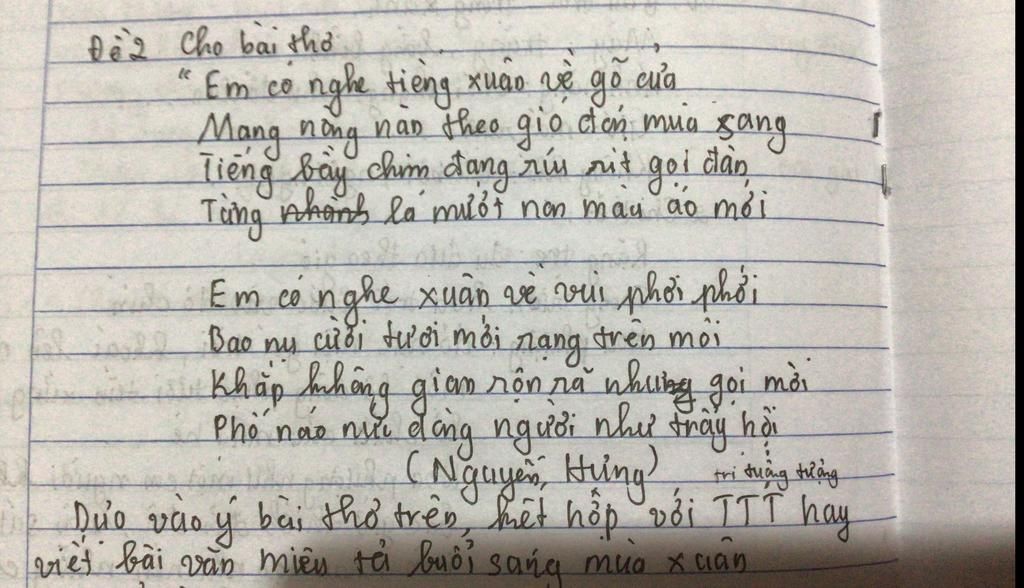 Đề 2 Cho bài thơ
"Em có nghe tiếng xuân về gõ cửa
Mang nồng nàn theo gió đón mùa sang
Tiếng bầy chim đang ríu rít gọi đàn
Từng nhành lá mướt non màu áo mới
Em có nghe xuân về vui phơi phới
Bao nụ cười tươi mới rạng trên môi
Khắp không gian rộn rã nhưng gọi mời
Phố náo nức dòng người như trẩy hội
(Nguyễn Hưng)
trí tưởng tượng
Dựa vào ý bài thơ trên, kết hợp với TTT hãy
viết bài văn miêu tả buổi sáng mùa xuân